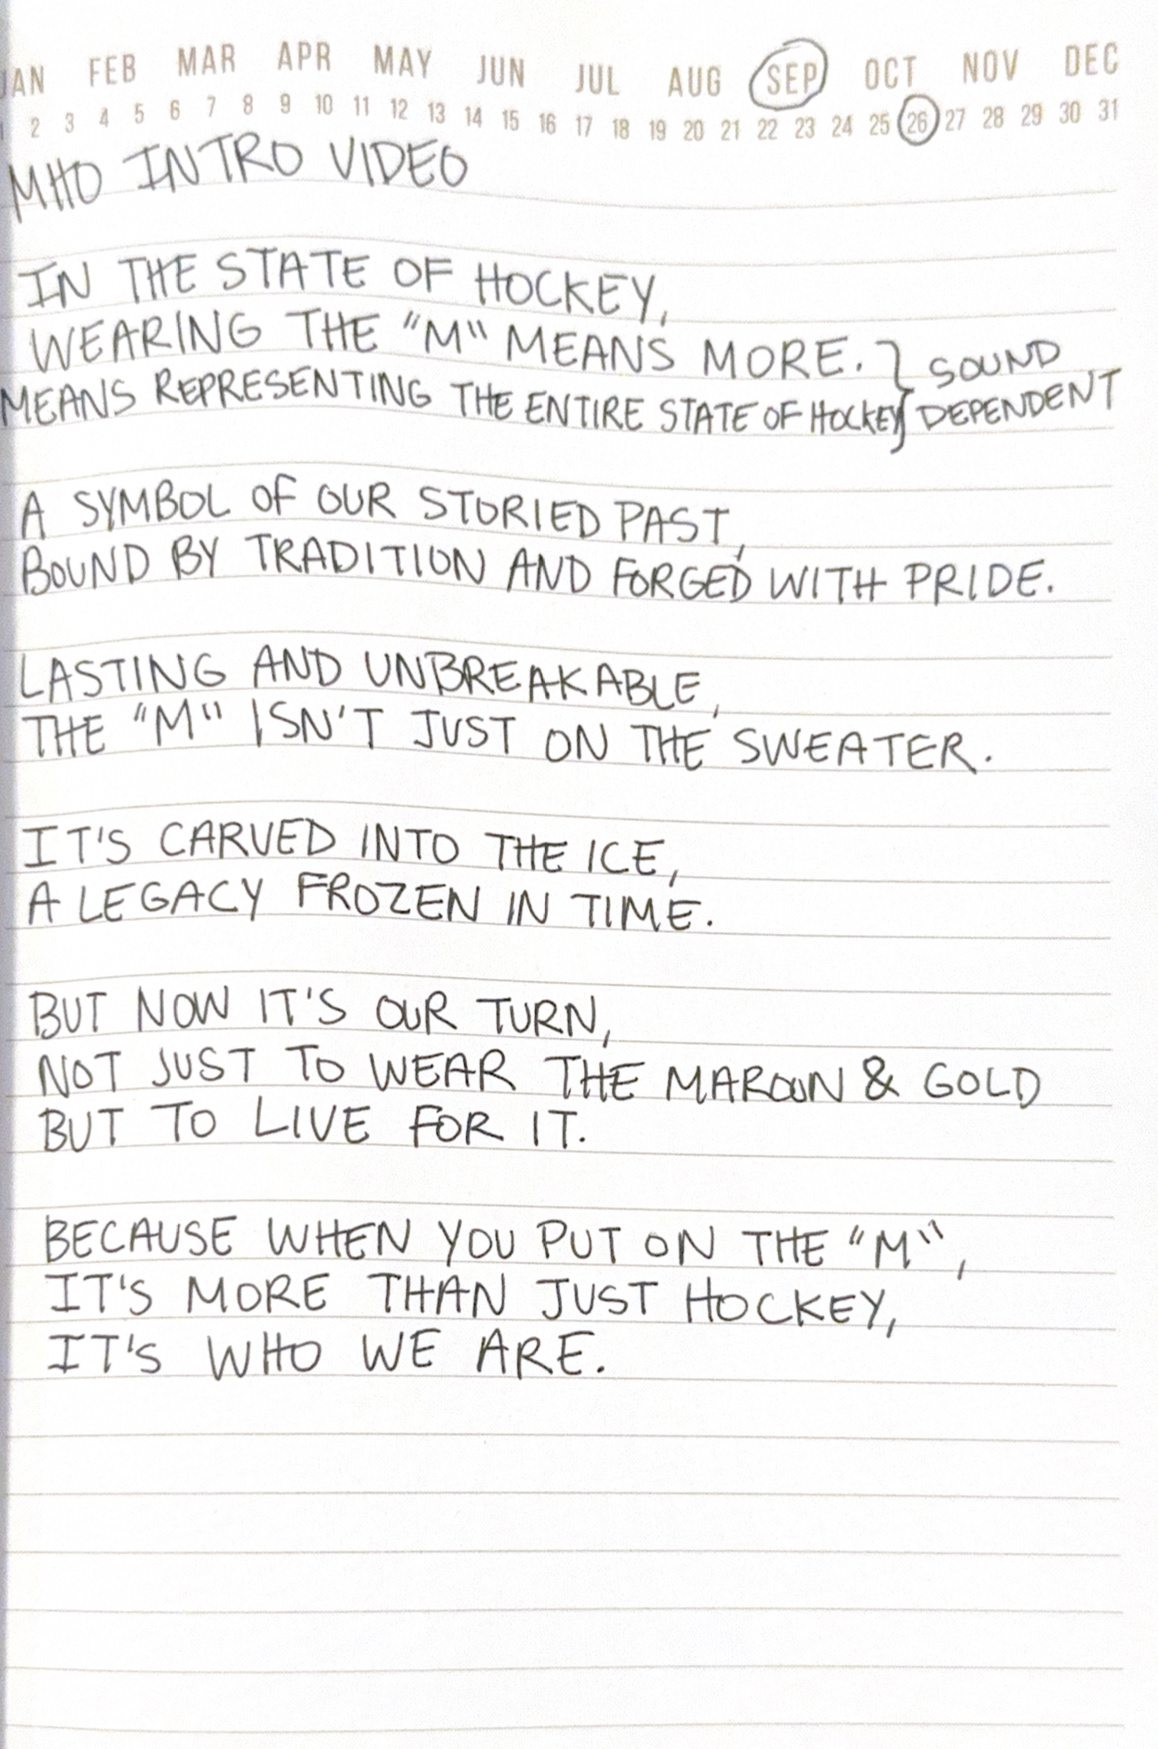 JAN FEB MAR APR MAY JUN JUL AUG SEP OCT NOV DEC
1 2 3 4 5 6 7 8 9 10 11 12 13 14 15 16 17 18 19 20 21 22 23 24 25 26 27 28 29 30 31
MHO INTRO VIDEO
IN THE STATE OF HOCKEY,
WEARING THE "M" MEANS MORE. } SOUND
MEANS REPRESENTING THE ENTIRE STATE OF HOCKEY } DEPENDENT
A SYMBOL OF OUR STORIED PAST,
BOUND BY TRADITION AND FORGED WITH PRIDE.
LASTING AND UNBREAKABLE,
THE "M" ISN'T JUST ON THE SWEATER.
IT'S CARVED INTO THE ICE,
A LEGACY FROZEN IN TIME.
BUT NOW IT'S OUR TURN,
NOT JUST TO WEAR THE MAROON & GOLD
BUT TO LIVE FOR IT.
BECAUSE WHEN YOU PUT ON THE "M",
IT'S MORE THAN JUST HOCKEY,
IT'S WHO WE ARE.